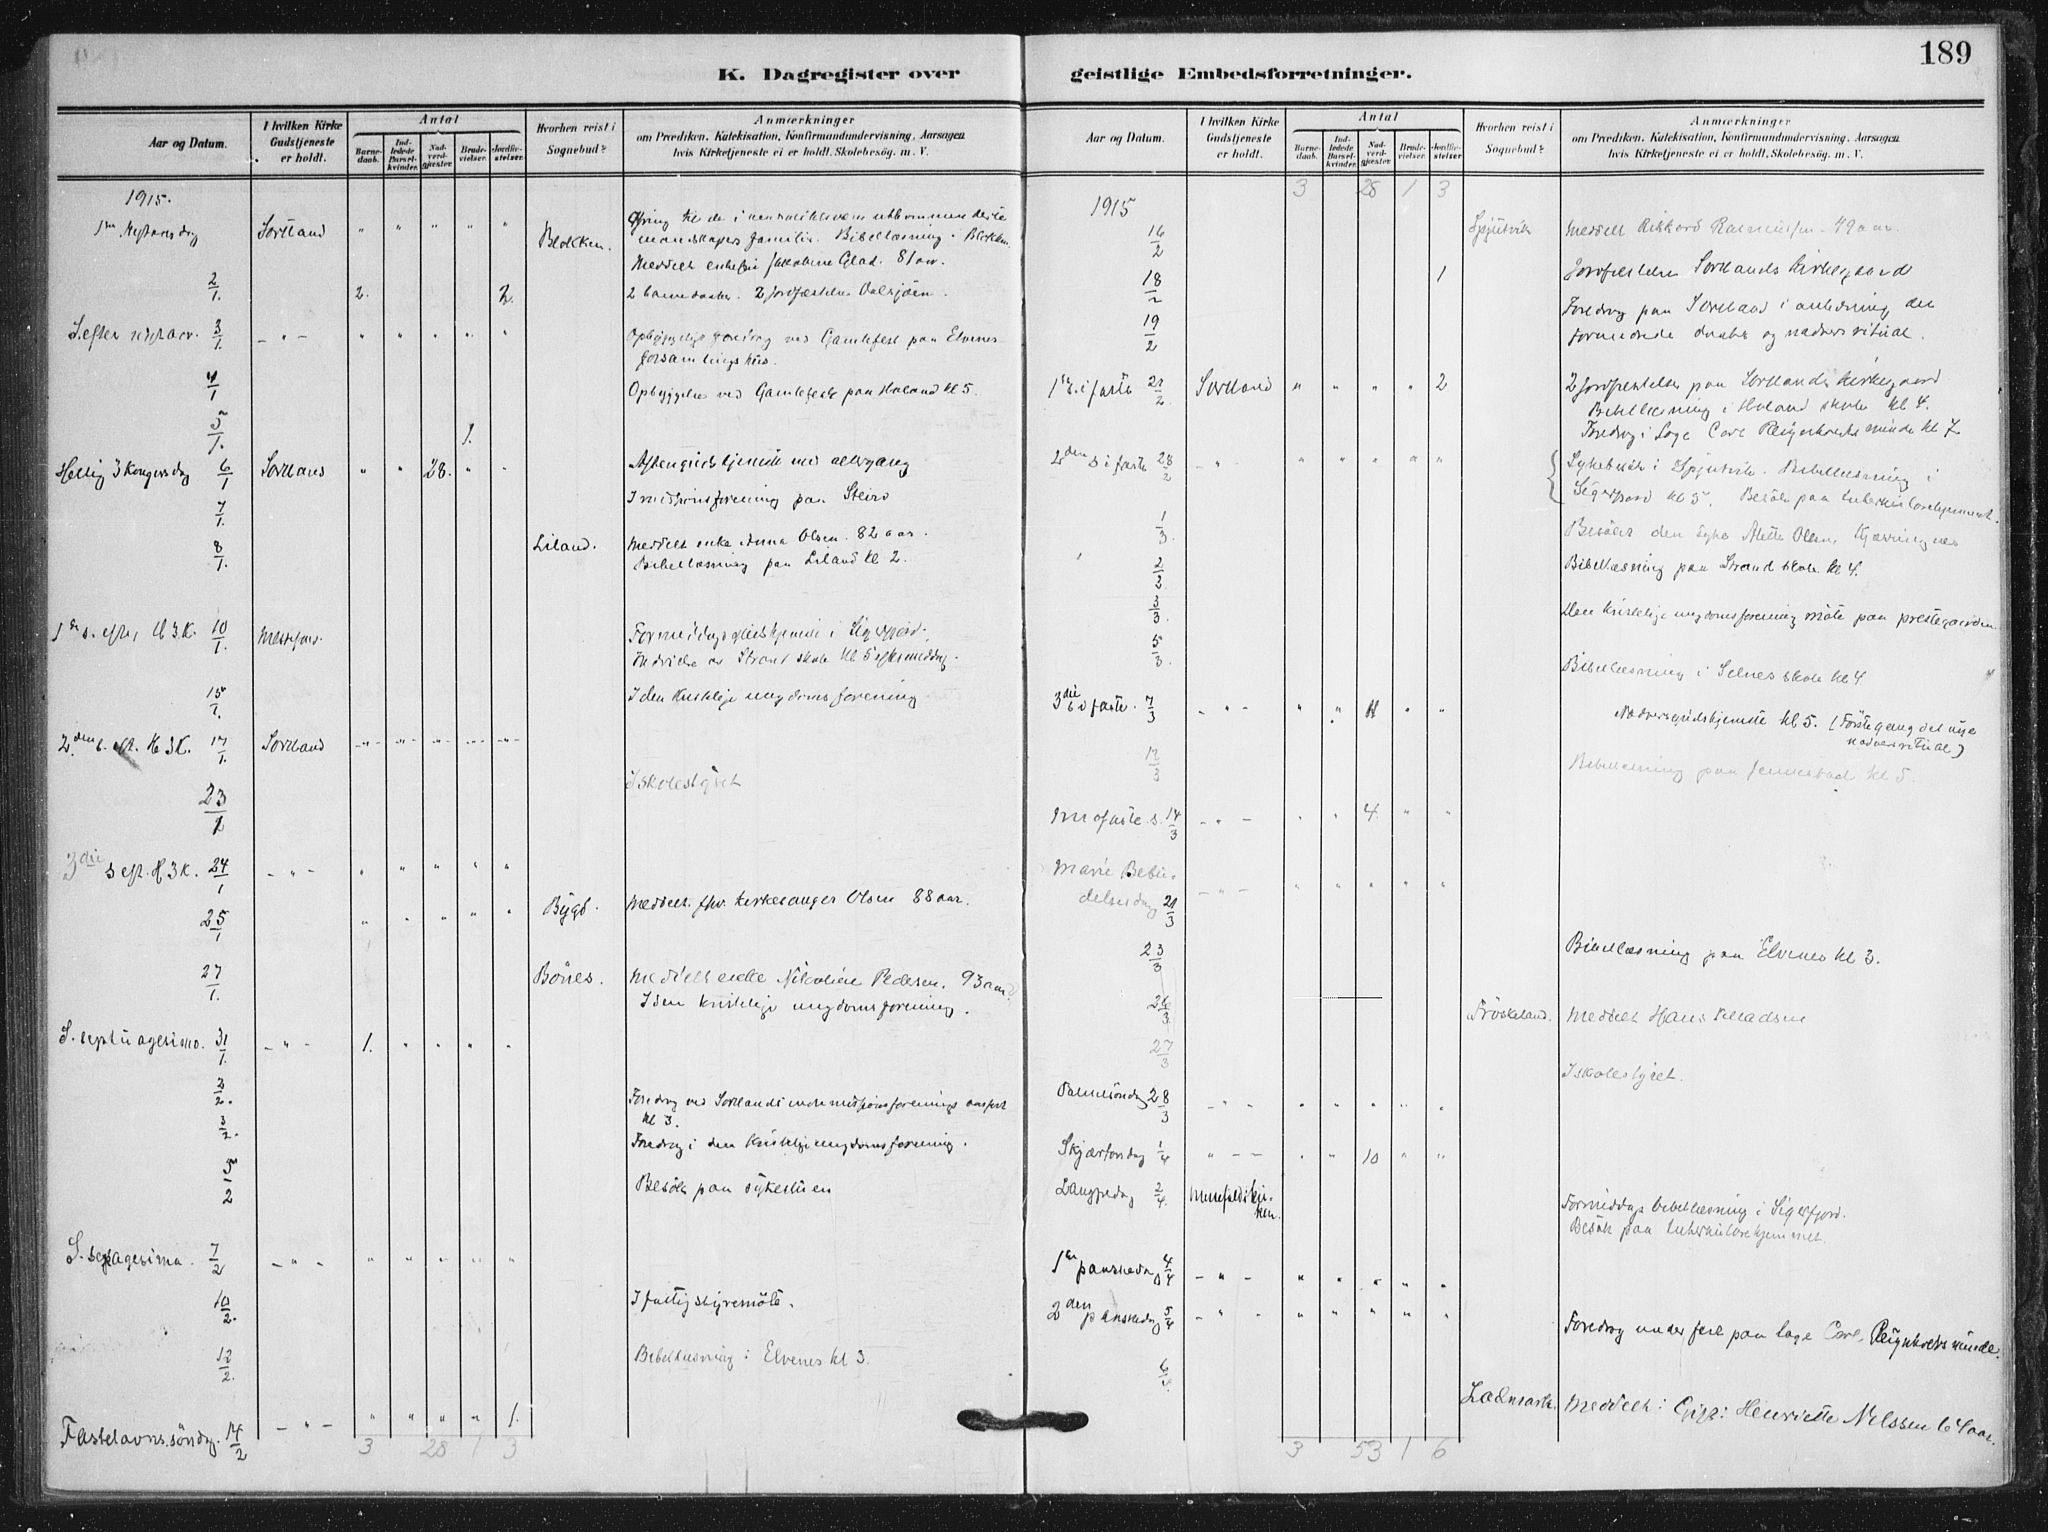 189
K. Dagregister over geistlige Embedsforretninger.
Aar og Datum.
I hvilken Kirke Gudstjeneste er holdt.
Antal
Barnedaab.
Indledede Barselkvinder.
Nadverdgjester.
Brudevielser.
Jordfæstelser.
Hvorhen reist i Sognebud?
Anmærkninger
om Prædiken, Katekisation, Konfirmandundervisning, Aarsagen
hvis Kirketjeneste ei er holdt, Skolebesøg. m. V.
1915.
1ste Nytaarsdag Sortland " " " " " Blokken.
Ofring til de i
mandskapers familie. Bibellæsning i Blokken.
Meddelt enkefru Glad. 81 aar.
2/1. 2. 2. 2 barnedaaber. 2 jordfæstelser
S. efter nytaar. 3/1. - " - " " " " " Opbyggelig foredrag ved Gamlefest paa Elvenes
forsamlingshus.
4/1 Opbyggelse ved Gamlefest paa Holand kl 5.
5/1. 1.
Hellig 3 Kongersdag 6/1 Sortland " " 28. " " Aftengudstjeneste med altergang
7/1. I missionsforening paa Steiro
8/1. Liland. Meddelt enke Anna Olsen. 82 aar.
Bibellæsning paa Liland kl 2.
1ste s. eft. H 3 K. 10/1. Messefald. Formiddagsgudstjeneste i Sigerfjord.
Strand skole kl 5 eftermiddag.
15/1. I den kristelige ungdomsforening
2den s. eft. H 3 K. 17/1. Sortland -"- -"- -"- -"- -"-
23/1 I skolestyret
3die s eft. H 3 K. 24/1 - " - " " " " "
25/1 " " " " " Bygd. Meddelt fhv. kirkesanger Olsen 88 aar.
27/1. Bönes. Meddelt enke Nikoline Pedersen. 93 aar.
I den kristelige ungdomsforening.
S. septuagesima. 31/1. - " - 1. " " " "
2/2. Foredrag ved Sortlands indremissionsforenings aarsfest
kl 3.
3/2. Foredrag i den kristelige ungdomsforening.
5/2 Besök paa sykestuen
S. sexagesima. 7/2 - " - " " " " "
10/2. I fattigstyremöte.
12/2. Bibellæsning i Elvenes kl 3.
Fastelavns söndag. 14/2 - " - " " " " 1.
3 28 1 3
Aar og Datum.
I hvilken Kirke Gudstjeneste er holdt.
Antal
Barnedaab.
Indledede Barselkvinder.
Nadverdgjester.
Brudevielser.
Jordfæstelser.
Hvorhen reist i Sognebud?
Anmærkninger
om Prædiken, Katekisation, Konfirmandundervisning, Aarsagen
hvis Kirketjeneste ei er holdt, Skolebesög. m. V.
3 28 1 3
1915
16/2 Spjutvik Meddelt Rikhard Rasmussen 49 aar.
18/2 1 Jordfæstelse Sortlands kirkegaard
19/2 Foredrag paa Sortland i anledning det
formerede daabs og nadvers ritual.
1ste s. i faste 21/2. Sortland " " " " 2 2 jordfæstelser paa Sortlands kirkegaard
Bibellæsning i Holand skole kl 4.
Foredrag i Loge Carl Reignholts minde kl 7
2den s i faste 28/2 - " - " " " " " Sykebesök i Spjutvik. Bibellæsning i
Sigerfjord kl 5. Besök paa tuberkulosehjemmet.
1/3. Besökt den syke Mette Olsen, Kjærringnes
2/3. Bibellæsning paa Strand skole kl 4.
3/3. Den kristelige ungdomsforening möte paa prestegaarden.
5/3. Bibellæsning i Selnes skole kl 4
3die s i faste. 7/3 - " - " " 11 " " Nadversgudstjeneste kl 5. (Förste gang det nye
nadversritual)
12/3 Bibellæsning paa Jennestad kl 5.
Midfaste s. 14/3 - " - " " 4. " "
Marie Bebudelsesdag 21/3 - " - " " " " "
23/3 Bibellæsning paa Elvenes kl 3.
26/3. Fröskeland. Meddelt Hans Madsen
27/3 I skolestyret.
Palmesöndag 28/3 - " - " " " " "
Skjærtorsdag 1/4 " - - " " 10 " "
Langfredag 2/4. Messefald i kirken. Formiddags bibellæsning i Sigerfjord.
Besök paa tuberkulosehjemmet.
1ste paaskedag 4/4 - " - " " " " "
2den paaskedag 5/4 - " - " " " " " Foredrag under fest paa Loge Carl Reignholts minde.
6/4. Meddelt: Henriette Nilssen 64 aar.
3 53 1 6